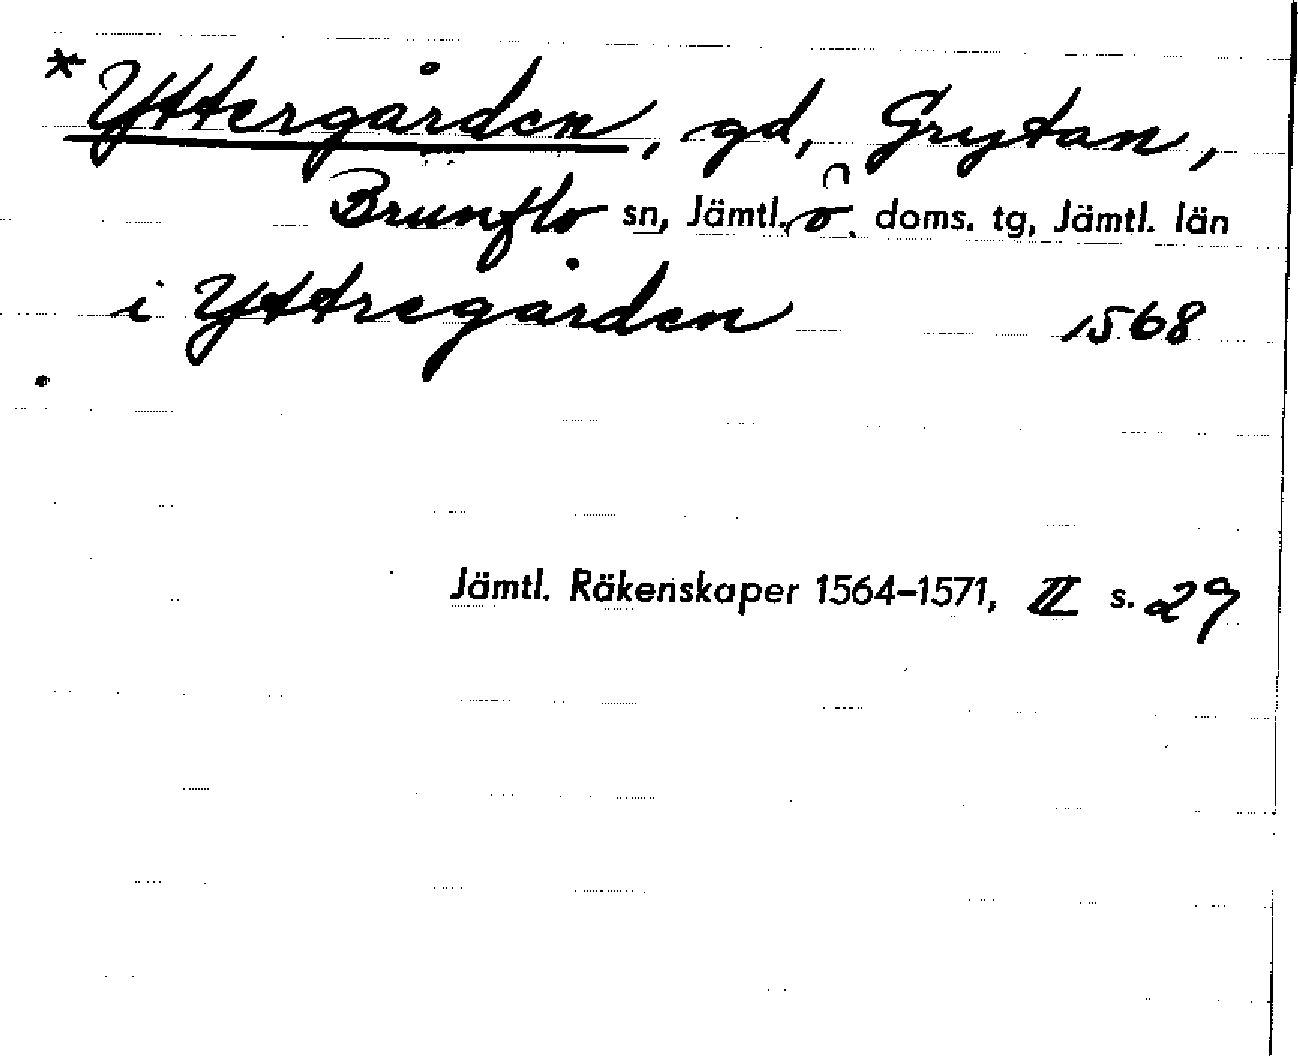 *Yttergården, gd, Grytan,
Brunflo sn, Jämtl. ö. doms. tg, Jämtl. län
i Yttregården 1568
Jämtl. Räkenskaper 1564–1571, II s. 29